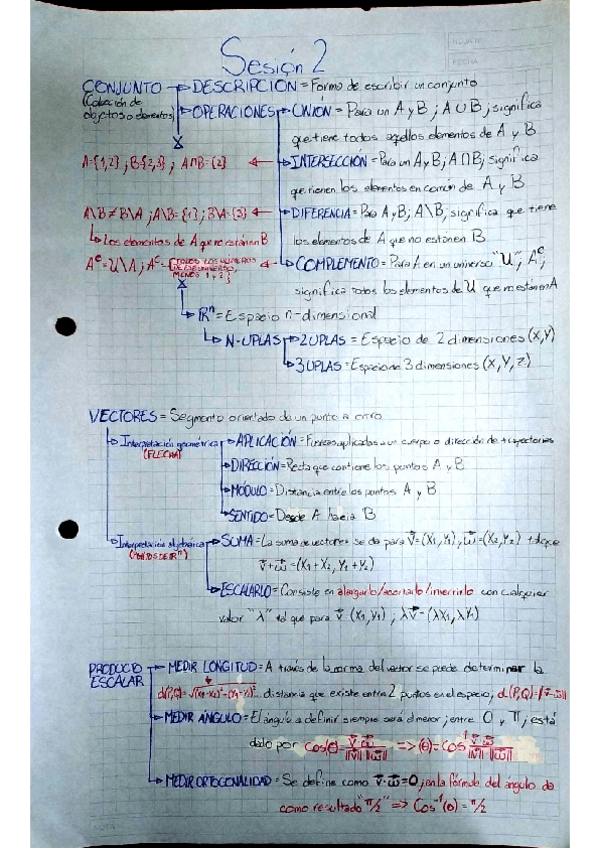 HOJA Nº
FECHA
Sesión 2
CONJUNTO → DESCRIPCIÓN = Forma de escribir un conjunto
(Colección de objetos o elementos) → OPERACIONES → UNIÓN = Para un A y B ; A ∪ B ; significa
que tiene todos aquellos elementos de A y B
A={1,2} ; B{2,3} ; A∩B={2} ← INTERSECCIÓN = Para un A y B ; A∩B ; significa
que tienen los elementos en común de A y B
A\B ≠ B\A ; A\B={1} ; B\A={3} ← DIFERENCIA = Para A y B ; A\B, significa que tiene
↳ Los elementos de A que no están en B
los elementos de A que no están en B
Aᶜ = U\A ; Aᶜ = {TODOS LOS NÚMEROS DE ESE UNIVERSO, MENOS 1 y 2} ← COMPLEMENTO = Para A en un universo "U" ; Aᶜ ;
significa todos los elementos de U que no están en A
→ ℝⁿ = Espacio n-dimensional
↳ N-UPLAS → 2 UPLAS = Espacio de 2 dimensiones (x,y)
→ 3 UPLAS = Espacio de 3 dimensiones (x,y,z)
VECTORES = Segmento orientado de un punto a otro
→ Interpretación geométrica (FLECHA) → APLICACIÓN = Fuerzas aplicadas a un cuerpo o dirección de trayectorias
→ DIRECCIÓN = Recta que contiene los puntos A y B
→ MÓDULO = Distancia entre los puntos A y B
→ SENTIDO = Desde A hacia B
→ Interpretación algebraica (PUNTOS DE ℝⁿ) → SUMA = La suma de vectores se da para v⃗=(X₁,Y₁), w⃗=(X₂,Y₂) tal que
v⃗+w⃗=(X₁+X₂, Y₁+Y₂)
→ ESCALARLO = Consiste en alargarlo/acortarlo/invertirlo con cualquier
valor "λ" tal que para v⃗ (X₁,Y₁) ; λv⃗=(λX₁,λY₁)
PRODUCTO ESCALAR → MEDIR LONGITUD = A través de la norma del vector se puede determinar la
d(P,Q)=√(X₁-X₂)²+(Y₁-Y₂)² distancia que existe entre 2 puntos en el espacio ;
→ MEDIR ÁNGULO = El ángulo a definir siempre será el menor ; entre 0 y π ; está
dado por Cos(θ)= v⃗·w⃗ / ||v⃗|| ||w⃗|| => (θ)=Cos⁻¹ v⃗·w⃗ / ||v⃗|| ||w⃗||
→ MEDIR ORTOGONALIDAD = Se define como v⃗·w⃗=0 ; en la fórmula del ángulo da
como resultado "π/2" => Cos⁻¹(0) = π/2